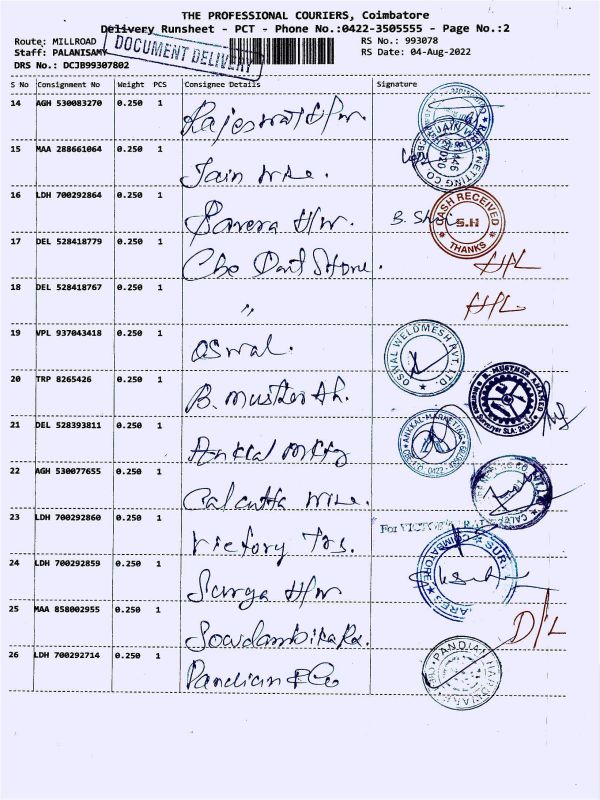 THE PROFESSIONAL COURIERS, Coimbatore
Delivery Runsheet - PCT - Phone No.:0422-3505555 - Page No.:2
Route: MILLROAD RS No.: 993078
Staff: PALANISAMY RS Date: 04-Aug-2022
DRS No.: DCJB99307802
DOCUMENT DELIVERY
S No Consignment No Weight PCS Consignee Details Signature
14 AGH 530083270 0.250 1
Rajeswari H/w.
15 MAA 288661064 0.250 1
Jain wire.
16 LDH 700292864 0.250 1
H/w. B.
CASH RECEIVED
S.H
THANKS
17 DEL 528418779 0.250 1
Store.
18 DEL 528418767 0.250 1
"
19 VPL 937043418 0.250 1
Oswal.
OSWAL WELDMESH PVT. LTD.
20 TRP 8265426 0.250 1
B. Musther Ah.
B. MUSTHER AHAMED
21 DEL 528393811 0.250 1
Ankkal Mktg
ANKKAL MARKETING
22 AGH 530077655 0.250 1
Calcutta wire.
23 LDH 700292860 0.250 1
Victory Trs.
For VICTORY TRADERS
24 LDH 700292859 0.250 1
Surya H/w
COIMBATORE
25 MAA 858002955 0.250 1
Sowdambika
D/L
26 LDH 700292714 0.250 1
Pandian & Co
PANDIAN HARDWARE